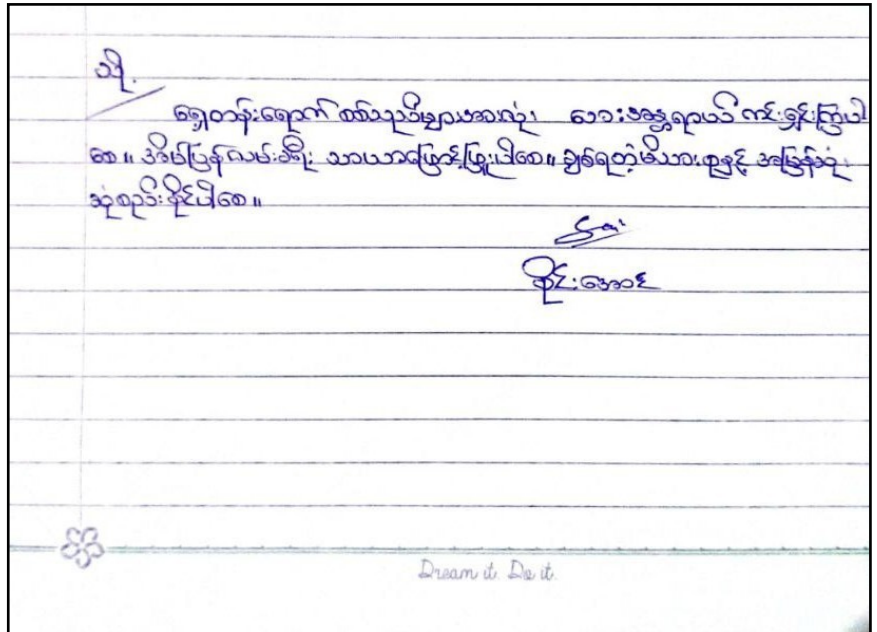 သို့
ရှေ့တန်းရောက် စစ်သည်များအားလုံး ဘေးအန္တရာယ် ကင်းရှင်းကြပါ
စေ။ အိမ်ပြန်လမ်းခရီး သာယာဖြောင့်ဖြူးပါစေ။ ချစ်ရတဲ့မိသားစုနှင့် အမြန်ဆုံး
ဆုံစည်းနိုင်ပါစေ။
ခိုင်းအောင်
Dream it. Do it.